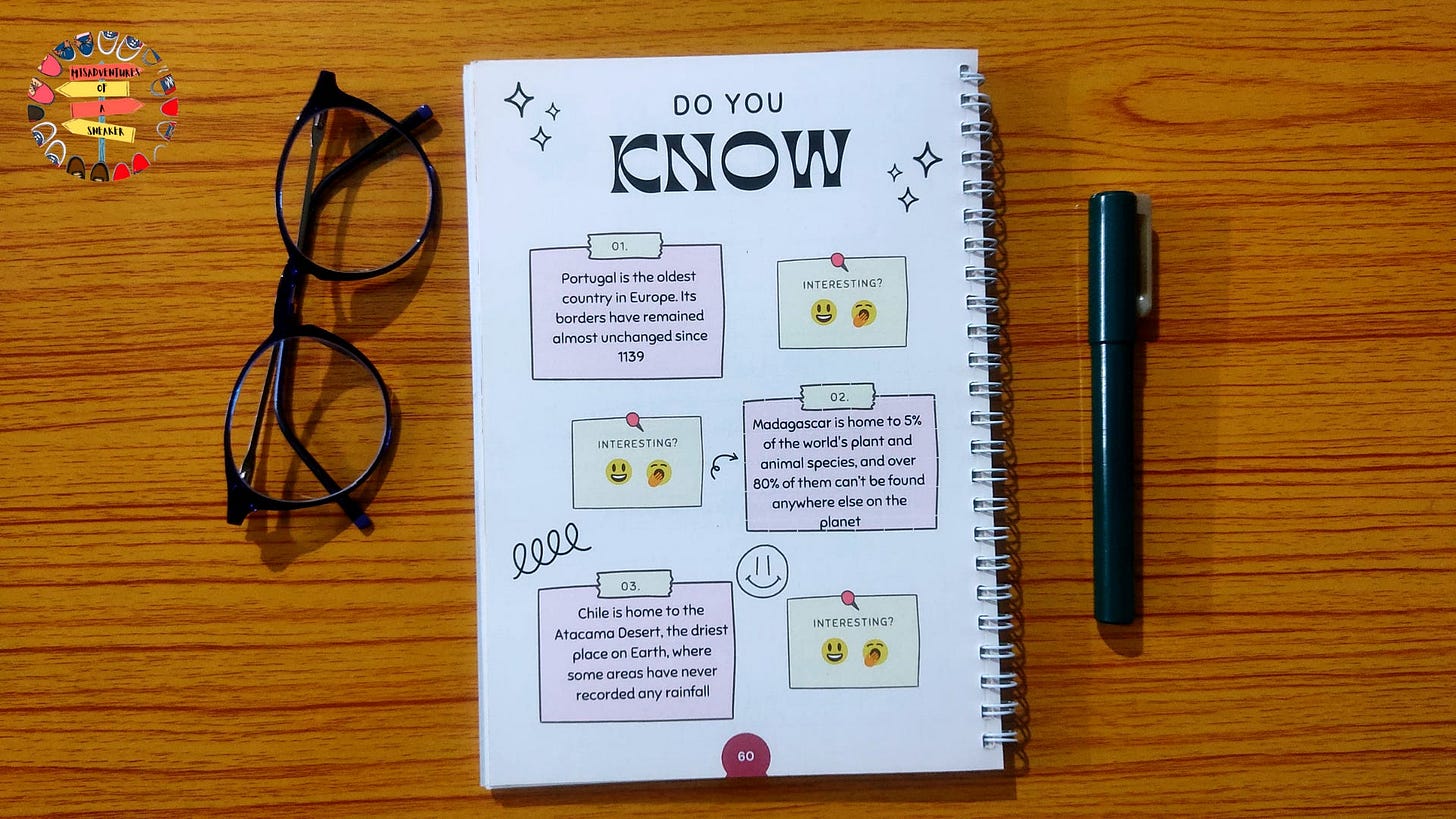 MISADVENTURES
OF
A
SNEAKER
DO YOU
KNOW
01.
Portugal is the oldest
country in Europe. Its
borders have remained
almost unchanged since
1139
INTERESTING?
02.
Madagascar is home to 5%
of the world's plant and
animal species, and over
80% of them can't be found
anywhere else on the
planet
INTERESTING?
03.
Chile is home to the
Atacama Desert, the driest
place on Earth, where
some areas have never
recorded any rainfall
INTERESTING?
60